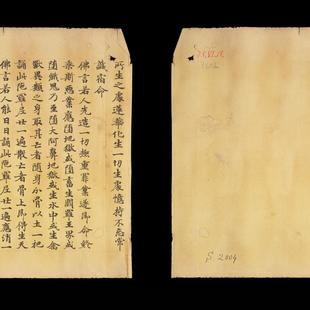 所生之處蓮華化生一切生處憶持不忘常
識宿命
佛言若人先造一切極重罪業遂即命終
乘斯惡業應墮地獄或墮畜生閻羅王界或
墮餓鬼乃至墮大阿鼻地獄或生水中或生禽
獸異類之身取其亡者隨身分骨以土一把
誦此陀羅尼廿一遍散亡者骨上即得生天
佛言若人能日日誦此陀羅尼廿一遍應消一
S. 2004